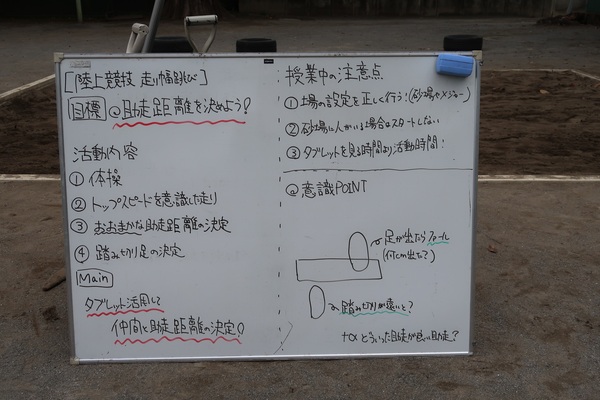 [陸上競技 走り幅跳び]
目標 @助走距離を決めよう!
活動内容
① 体操
② トップスピードを意識した走り
③ おおまかな助走距離の決定
④ 踏み切り足の決定
Main
タブレット活用して
仲間と助走距離の決定!
授業中の注意点
① 場の設定を正しく行う!(砂場やメジャー)
② 砂場に人がいる場合はスタートしない
③ タブレットを見る時間より活動時間!
@意識POINT
足が出たらファール
(何cm出た?)
踏み切りが遠いと?
+α どういった助走が良い助走?